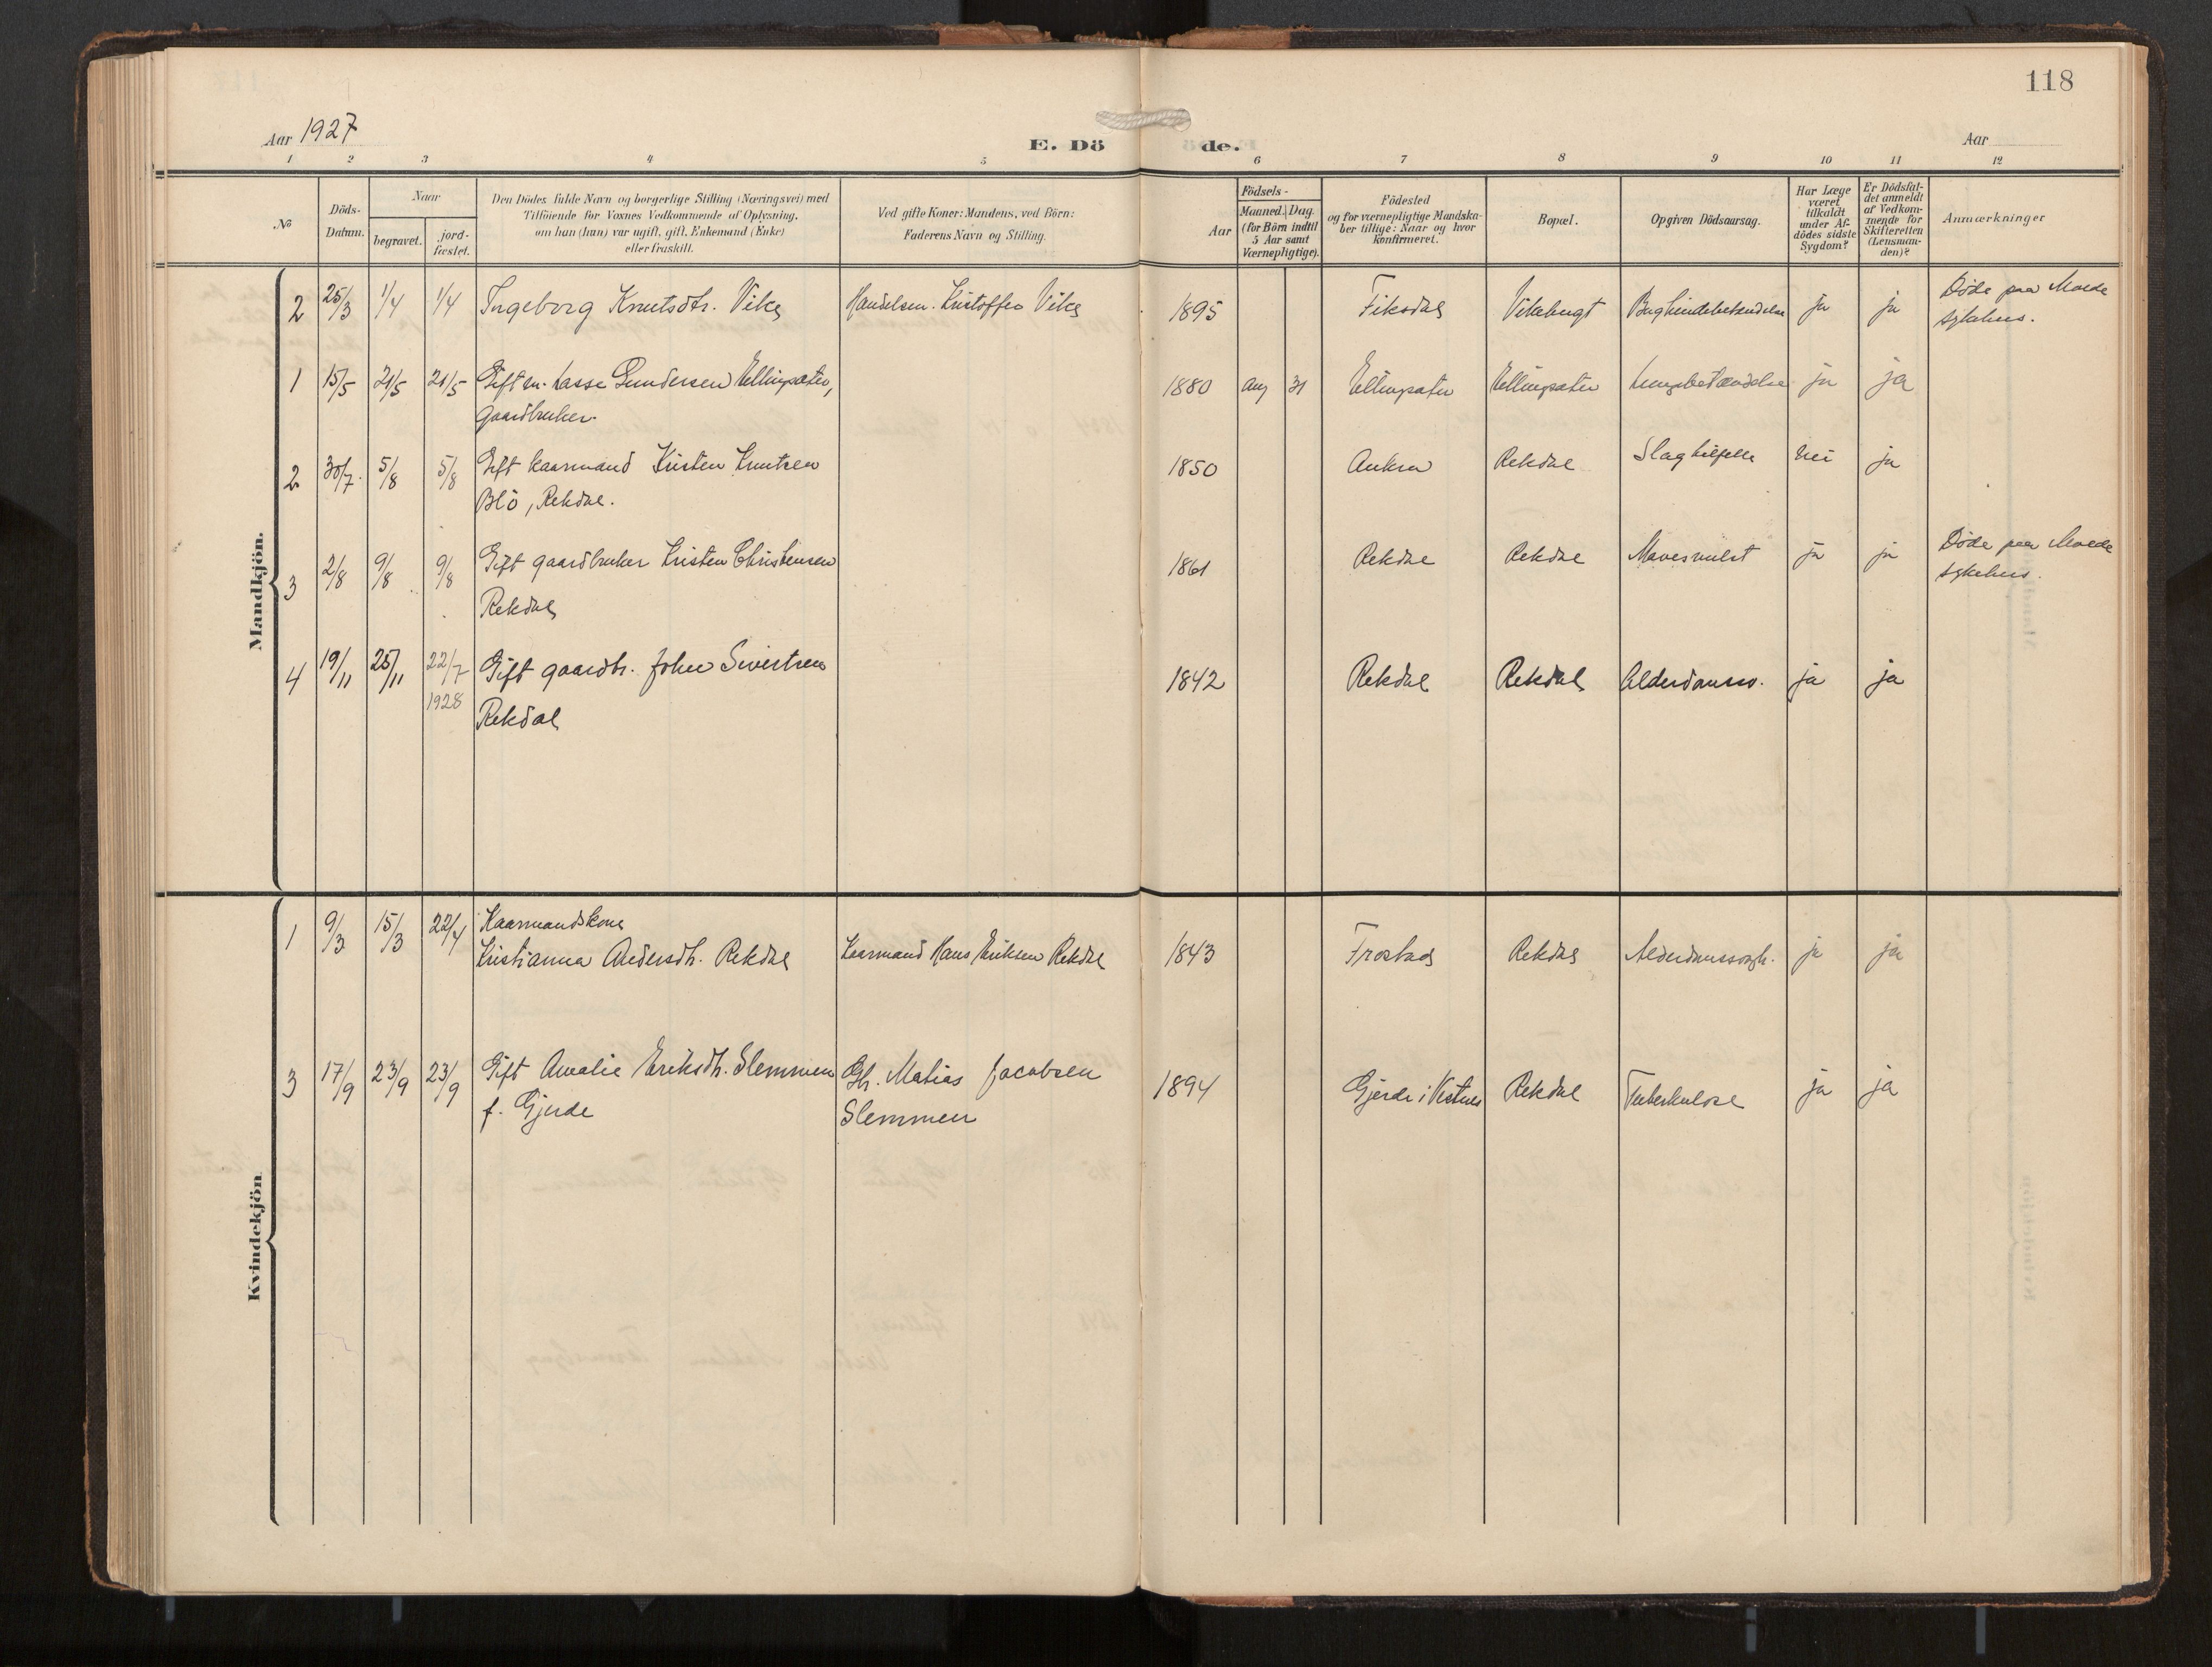 118
Aar 1927
E. Dö
de.
Aar
1 2 3 4 5 6 7 8 9 10 11 12
No
Döds-
Datum.
Naar
begravet.
jord-
fæstet.
Den Dödes fulde Navn og borgerlige Stilling (Næringsvei) med
Tilföiende for Voxnes Vedkommende af Oplysning,
om han (hun) var ugift, gift, Enkemand (Enke)
eller fraskilt.
Ved gifte Koner: Mandens, ved Börn:
Faderens Navn og Stilling.
Födsels-
Aar
Maaned. Dag.
(for Börn indtil
5 Aar samt
Værnepligtige).
Födested
og for værnepligtige Mandska-
ber tillige: Naar og hvor
konfirmeret.
Bopæl.
Opgiven Dödsaarsag.
Har Læge
været
tilkaldt
under Af-
dödes sidste
Sygdom?
Er Dödsfal-
det anmeldt
af Vedkom-
mende for
Skifteretten
(Lensman-
den)?
Anmærkninger
Mandkjön.
2 25/3 1/4 1/4 Ingeborg Knutsdtr. Vike Handelsm. Kristoffer Vike 1895 Fiksdal Vikebugt ja ja Döde paa Molde
sykehus.
1 15/5 21/5 21/5 Gift m. Lasse Gundersen Ellingsæter, 1880 Aug 31 Ellingsæter Ellingsæter Lungebetændelse ja ja
gaardbruker.
2 30/7 5/8 5/8 Gift kaarmand Kristen Knutsen 1850 Aukra Rekdal Slagtilfelle nei ja
Blö, Rekdal.
3 2/8 9/8 9/8 Gift gaardbruker Kristen Christensen 1861 Rekdal Rekdal Mavesvulst ja ja Döde paa Molde
Rekdal sykehus.
4 19/11 25/11 22/7 Gift gaardbr. John Sivertsen 1842 Rekdal Rekdal Alderdomssv. ja ja
1928 Rekdal
Kvindekjön
1 9/3 15/3 22/4 Kaarmandskone
Kristianna Andersdtr. Rekdal Kaarmand Hans Eriksen Rekdal 1843 Frostad Rekdal ja ja
3 17/9 23/9 23/9 Gift Amalie Eriksdtr. Slemmen Gbr. Matias Jacobsen 1894 Gjerde i Vestnes Rekdal Tuberkulose ja ja
f. Gjerde Slemmen